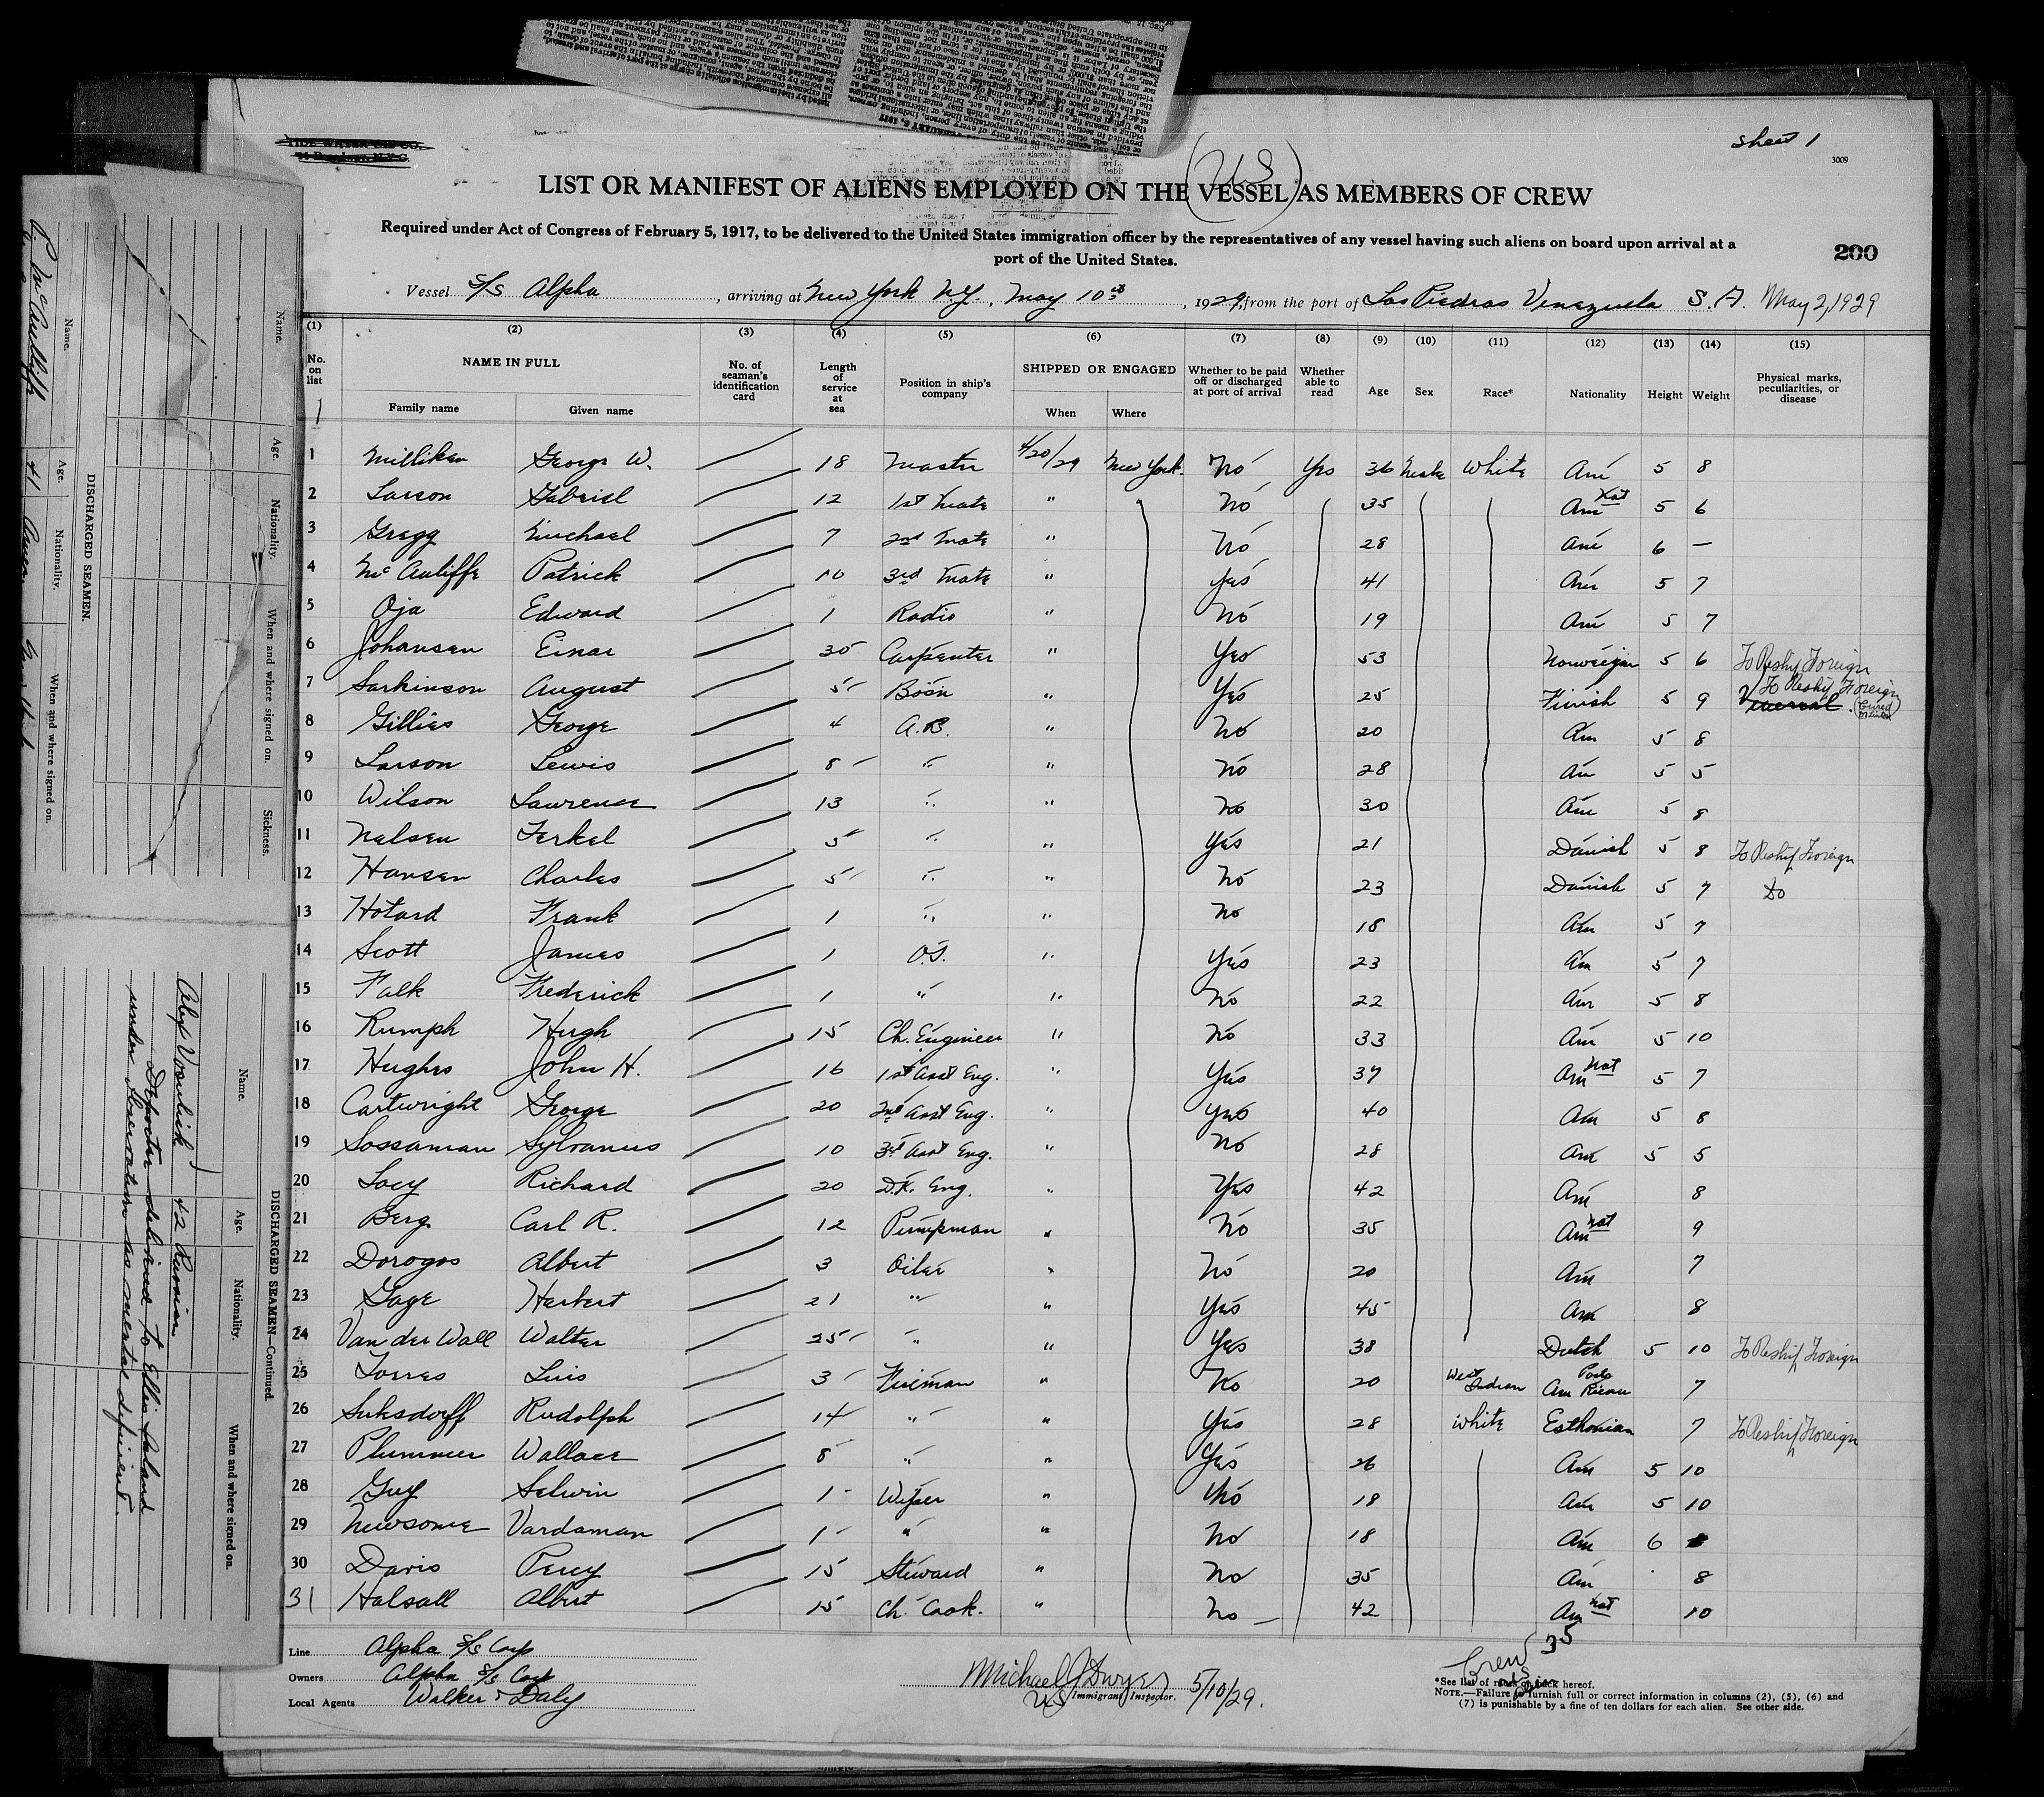 sheet 1
3009
TIDE WATER OIL CO.
(US)
LIST OR MANIFEST OF ALIENS EMPLOYED ON THE VESSEL AS MEMBERS OF CREW
Required under Act of Congress of February 5, 1917, to be delivered to the United States immigration officer by the representatives of any vessel having such aliens on board upon arrival at a
port of the United States.
200
Vessel S/S Alpha, arriving at New York NY., May 10th, 1929, from the port of Las Piedras Venezuela S. A. May 2, 1929
(1) (2) (3) (4) (5) (6) (7) (8) (9) (10) (11) (12) (13) (14) (15)
No. on list NAME IN FULL Family name Given name No. of seaman's identification card Length of service at sea Position in ship's company SHIPPED OR ENGAGED When Where Whether to be paid off or discharged at port of arrival Whether able to read Age Sex Race* Nationality Height Weight Physical marks, peculiarities, or disease
1 Milliken George W. 18 Master 4/20/29 New York. No Yes 36 Male White Am 5 8
2 Larson Gabriel 12 1st Mate " No 35 Am Nat 5 6
3 Gregg Michael 7 2nd Mate " No 28 Am 6 —
4 Mc Auliffe Patrick 10 3rd Mate " Yes 41 Am 5 7
5 Oja Edward 1 Radio " No 19 Am 5 7
6 Johansen Einar 30 Carpenter " Yes 53 Norweigan 5 6 To Reship Foreign
7 Sarkinson August 5 Bosn " Yes 25 Finish 5 9 To Reship Foreign Venereal (Cured
8 Gillies George 4 A.B. " No 20 Am 5 8
9 Larson Lewis 8 " " No 28 Am 5 5
10 Wilson Lawrence 13 " " No 30 Am 5 8
11 Nelsen Terkel 5 " " Yes 21 Danish 5 8 To Reship Foreign
12 Hansen Charles 5 " " No 23 Danish 5 7 Do
13 Hotard Frank 1 " " No 18 Am 5 7
14 Scott James 1 O.S. " Yes 23 Am 5 7
15 Falk Frederick 1 " " No 22 Am 5 8
16 Rumph Hugh 15 Ch. Engineer " No 33 Am 5 10
17 Hughes John H. 16 1st Asst Eng. " Yes 37 Am Nat 5 7
18 Cartwright George 20 2nd Asst Eng. " Yes 40 Am 5 8
19 Sossaman Sylvanus 10 3rd Asst Eng. " No 28 Am 5 5
20 Loey Richard 20 D.K. Eng. " Yes 42 Am 8
21 Berg Carl R. 12 Pumpman " No 35 Am Nat 9
22 Dorogos Albert 3 Oiler " No 20 Am 7
23 Gage Herbert 21 " " Yes 45 Am 8
24 Van der Wall Walter 25 " " Yes 38 Dutch 5 10 To Reship Foreign
25 Torres Luis 3 Fireman " No 20 West Indian Am Porto Rican 7
26 Suksdorff Rudolph 14 " " Yes 28 White Esthonian 7 To Reship Foreign
27 Plummer Wallace 8 " " Yes 26 Am 5 10
28 Guy Selwin 1 Wiper " No 18 Am 5 10
29 Newsome Vardaman 1 " " No 18 Am 6
30 Davis Percy 15 Steward " No 35 Am 8
31 Halsall Albert 15 Ch. Cook. " No 42 Am Nat 10
Line Alpha S/S Corp
Owners Alpha S/S Corp
Local Agents Walker & Daly
Michael J Dwyer 5/10/29.
US Immigrant Inspector.
Crew 35
*See list of races on back hereof.
NOTE.—Failure to furnish full or correct information in columns (2), (5), (6) and
(7) is punishable by a fine of ten dollars for each alien. See other side.
DISCHARGED SEAMEN.
Name. Age. Nationality. When and where signed on. Sickness.
Name. Age. Nationality. When and where signed on.
P. McAuliffe 41 Amer.
DISCHARGED SEAMEN—Continued.
Name. Age. Nationality. When and where signed on.
42 Russian
Deportee delivered to Ellis Island
under observation as mental deficient.